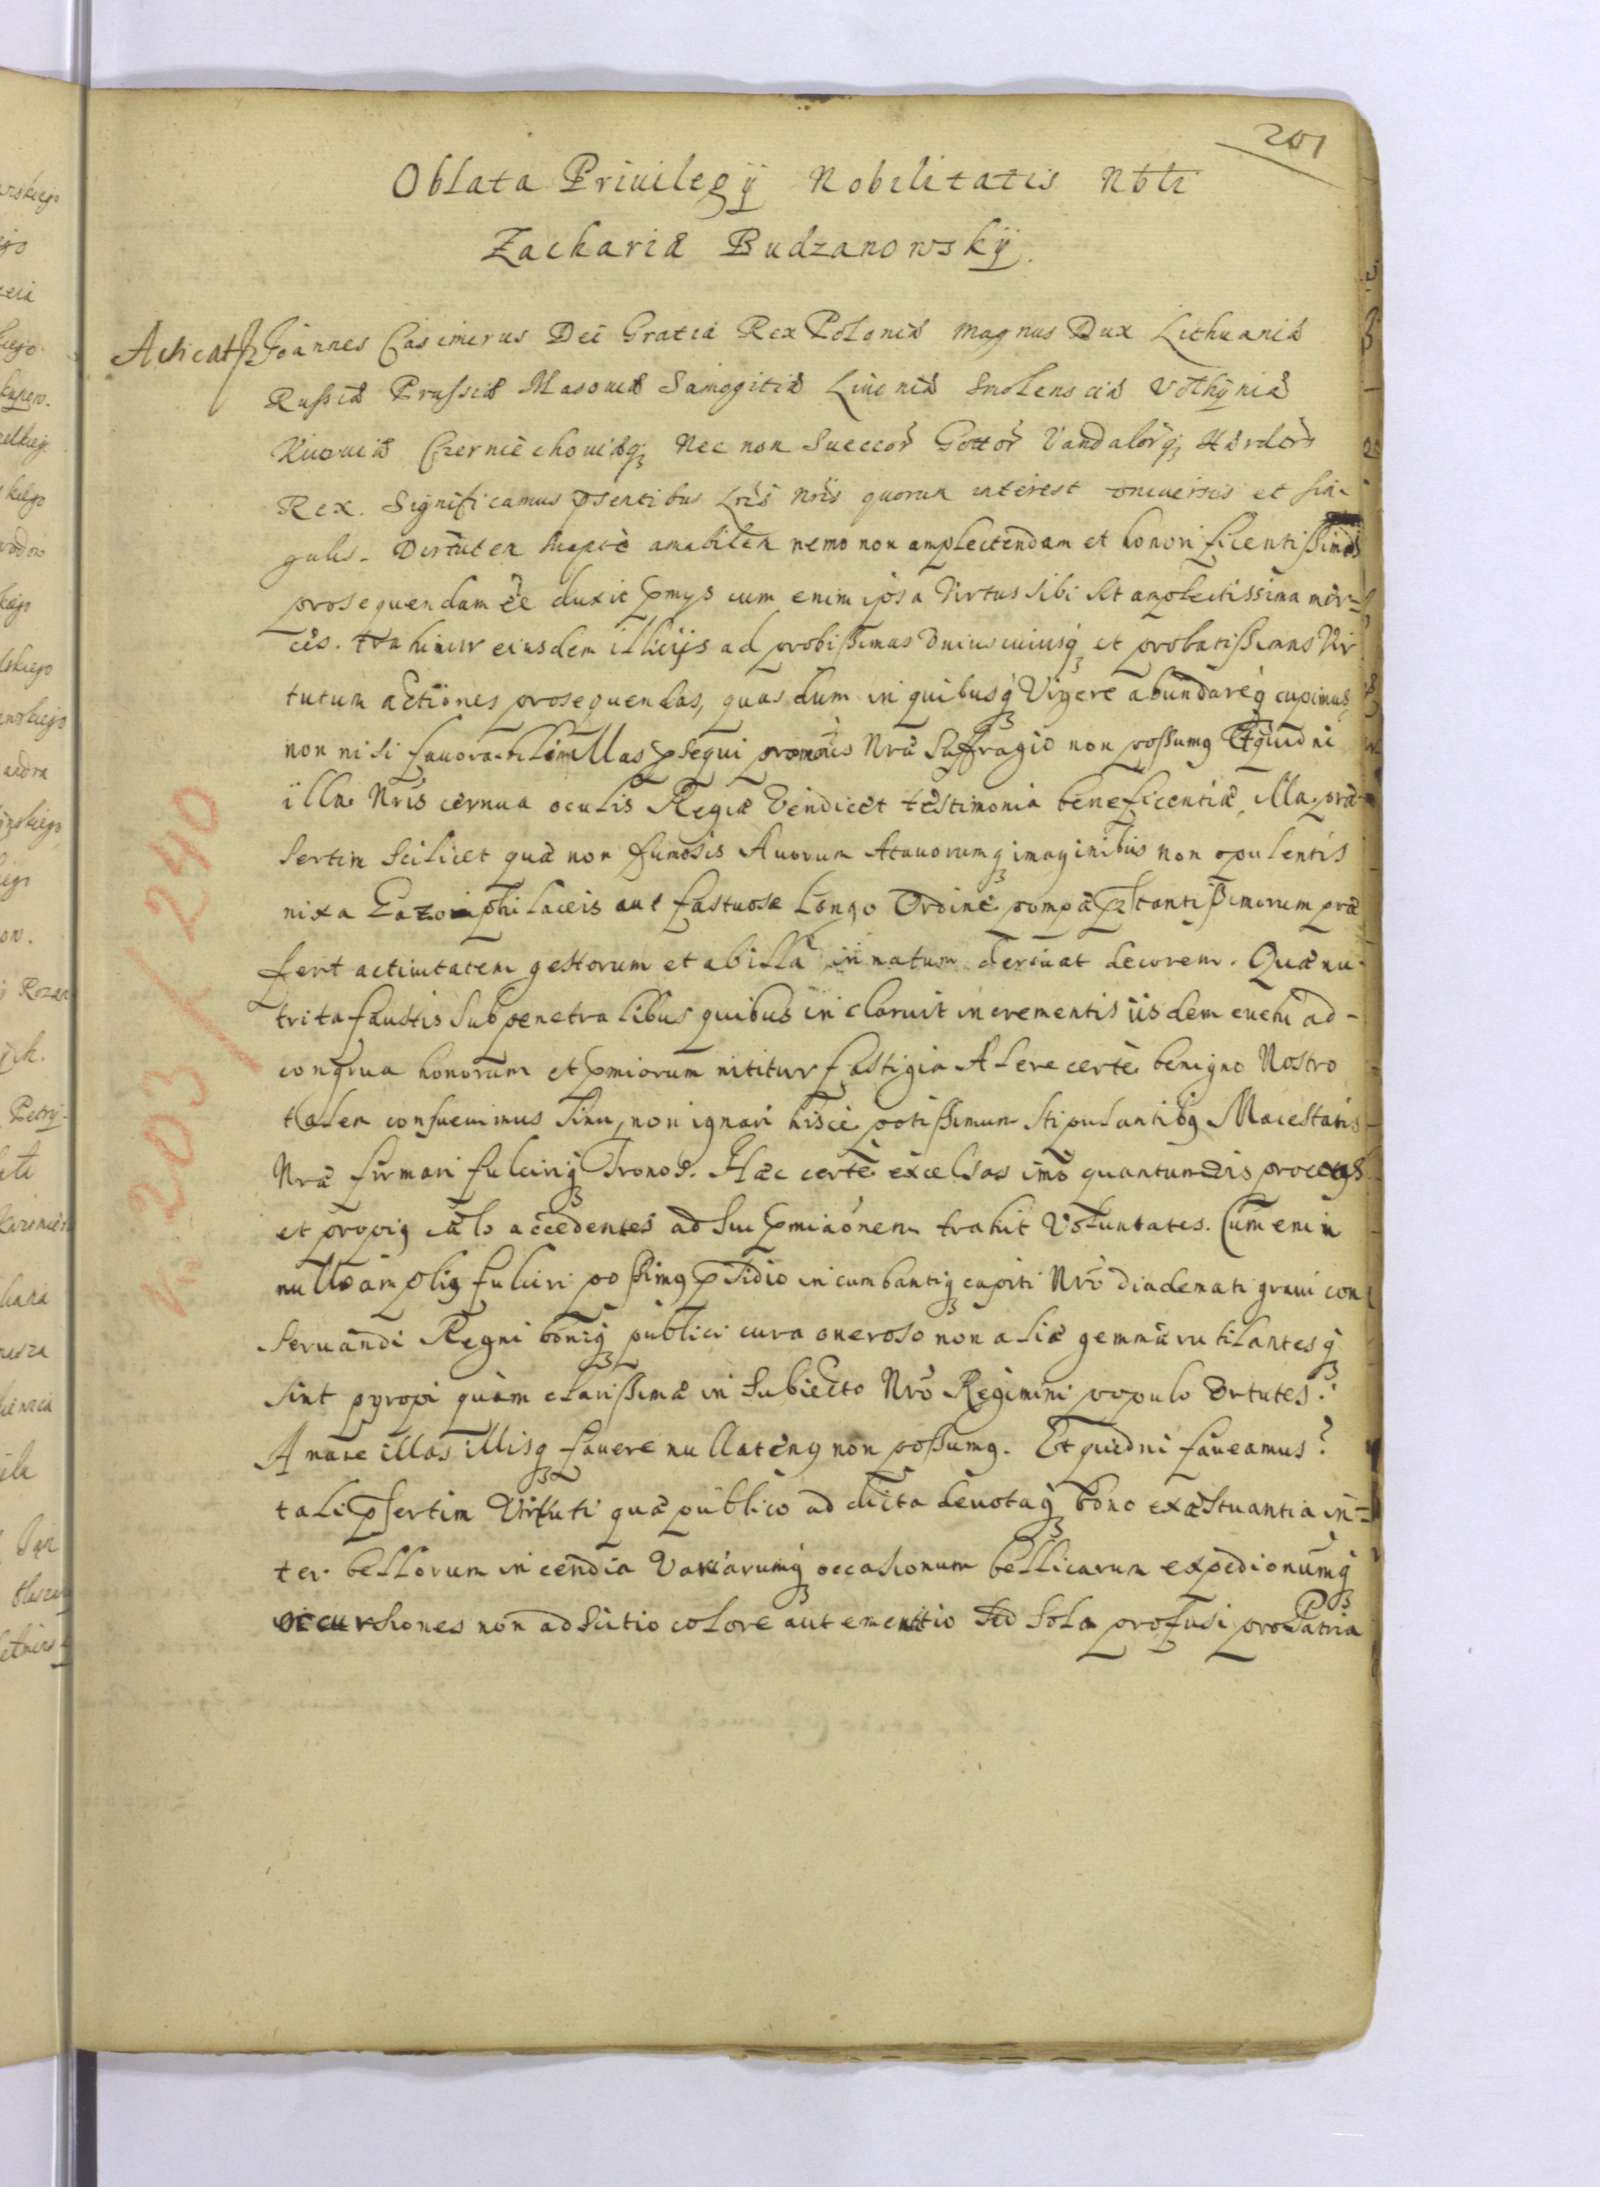 201
Oblata Priuilegÿ Nobilitatis Nbli
Zachariæ Budzanowskÿ.
Joannes Casimirus Dei Gratia Rex Poloniæ Magnus Dux Lithuaniæ
Russiæ Prussiæ Masouiæ Samogitiæ Liuoniæ Smolensciæ Volhÿniæ
Kiiouiæ Czerniechouiæq Nec non Suecor Gottor Vandalorq Hærdrs
Rex. Significamus psentibus Lris Nris quorum interest vniuersis et sin-
gulis. Virtutem suapte amabilem nemo non amplectendam et honorificentissimis
prosequendam ee duxit pmÿs cum enim ipsa Virtus sibi sit amplectissima mer-
ces. trahimur eiusdem illicijs ad probissimas Vniuscuiusq et probatissimas Vir
tutum actiones prosequendas, quas dum in quibusq Vigere abundareq cupimus
non nisi fauorabili illas psequi Nræ Suffragio non possumq Etquidni
illa Nris cernua oculis Regiæ Vendicet testimonia beneficentiæ, illa præ
sertim Scilicet quæ non fumosis Auorum Atauorumq imaginibus non opulentis
nixa Gazophilaceis aut fastuose Longo Ordine pompa pstantissimorum præ
fert actiuitatem gestorum et ab illa innatum deriuat decorem. Quæ nu-
trita faustis Sub penetralibus quibus inclaruit incrementis iisdem euehi ad-
congrua honorum et pmiorum nititur fastigia Alere certe benigno Nostro
talem consueuimus Sinu, non ignari hisce potissimum Stipulantibq Maiestatis
Nræ firmari fulciriq Tronos. Hæc certe excelsas imo quantumvis proceras
et propiq cælo accedentes ad Sui pmiaonem trahit Voluntates. Cum enim
nullo ampliq fulciri possimq psidio incumbantiq capiti Nro diademati graui con
seruandi Regni boniq publici cura oneroso non aliæ gemmæ rutilantesq
sint pyropi quam clarissimæ in Subiecto Nro Regimini populo Vrtutes?
Amare illas illisq fauere nullatenq non possumq. Et quidni faueamus?
tali psertim Virtuti quæ publico addicta deuotaq bono exæstuantia in-
ter bellorum incendia Variarumq occasionum bellicarum expedionumq
incursiones non adscitio colore aut ementtio Sed Sola profusi pro Patria
No 203/240